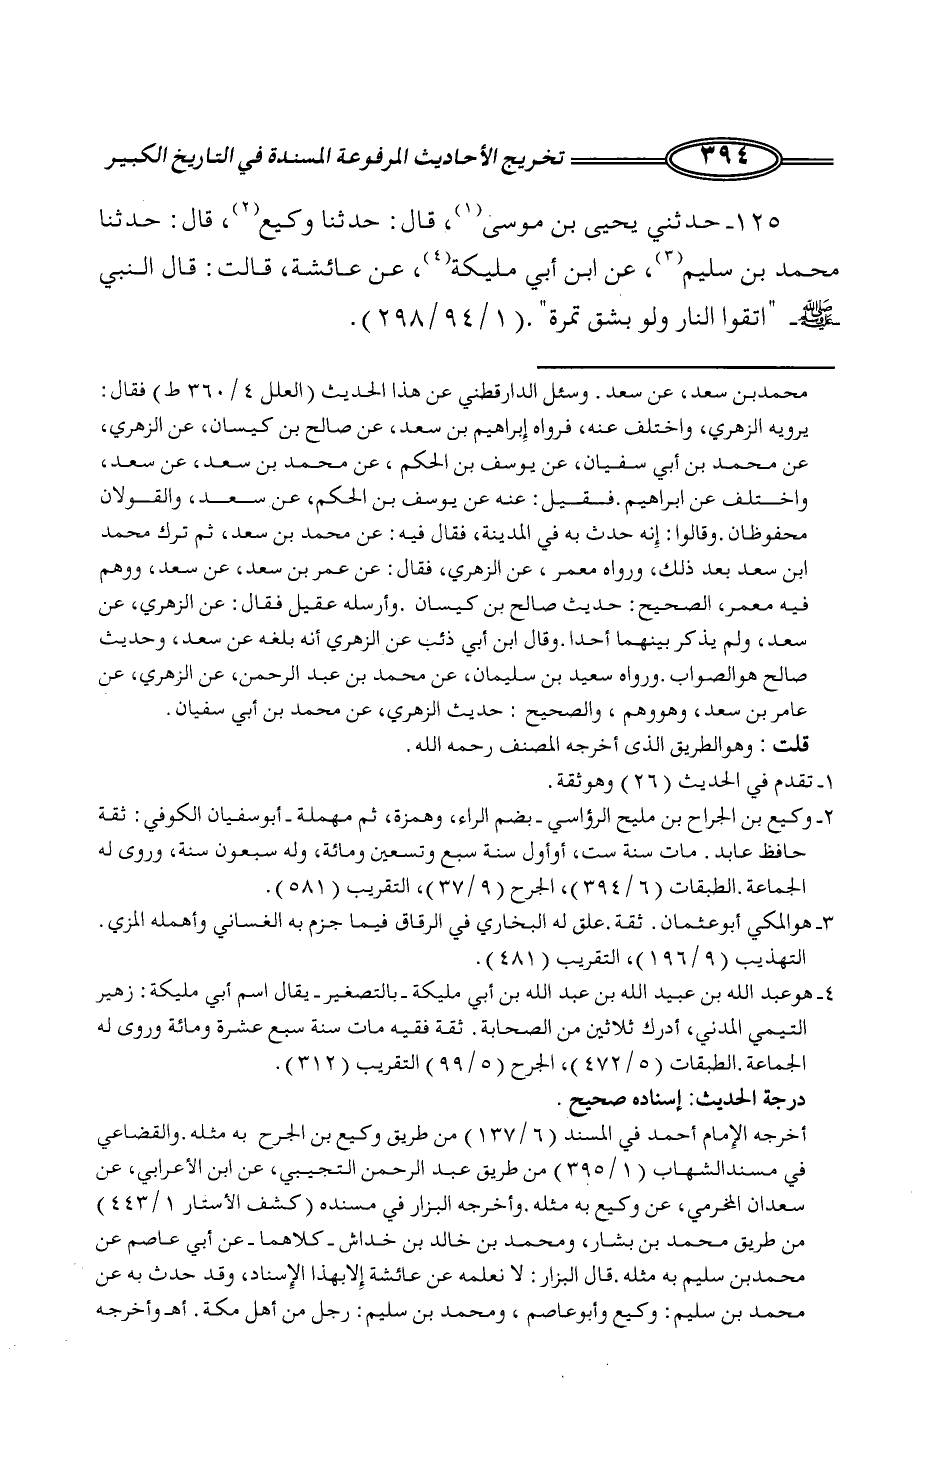 ٣٩٤ تخريج الأحاديث المرفوعة المسندة في التاريخ الكبير
١٢٥ـ حدثني يحيى بن موسى(١)، قال: حدثنا وكيع(٢)، قال: حدثنا
محمد بن سليم(٣)، عن ابن أبي مليكة(٤)، عن عائشة، قالت: قال النبي
ـﷺـ "اتقوا النار ولو بشق تمرة". (٢٩٨/٩٤/١).
محمدبن سعد، عن سعد. وسئل الدارقطني عن هذا الحديث (العلل ٣٦٠/٤ ط) فقال:
يرويه الزهري، واختلف عنه، فرواه إبراهيم بن سعد، عن صالح بن كيسان، عن الزهري،
عن محمد بن أبي سفيان، عن يوسف بن الحكم ، عن محمد بن سعد، عن سعد،
واختلف عن ابراهيم .فقيل: عنه عن يوسف بن الحكم، عن سعد، والقولان
محفوظان .وقالوا: إنه حدث به في المدينة، فقال فيه: عن محمد بن سعد، ثم ترك محمد
ابن سعد بعد ذلك، ورواه معمر ، عن الزهري، فقال: عن عمر بن سعد، عن سعد، ووهم
فيه معمر، الصحيح: حديث صالح بن كيسان .وأرسله عقيل فقال: عن الزهري، عن
سعد، ولم يذكر بينهما أحدا .وقال ابن أبي ذئب عن الزهري أنه بلغه عن سعد، وحديث
صالح هوالصواب .ورواه سعيد بن سليمان، عن محمد بن عبد الرحمن، عن الزهري، عن
عامر بن سعد، وهووهم ، والصحيح : حديث الزهري، عن محمد بن أبي سفيان .
قلت : وهوالطريق الذى أخرجه المصنف رحمه الله.
١ـ تقدم في الحديث (٢٦) وهوثقة.
٢ـ وكيع بن الجراح بن مليح الرؤاسي ـ بضم الراء، وهمزة، ثم مهملة ـ أبوسفيان الكوفي: ثقة
حافظ عابد. مات سنة ست، أوأول سنة سبع وتسعين ومائة، وله سبعون سنة، وروى له
الجماعة .الطبقات (٣٩٤/٦)، الجرح (٣٧/٩)، التقريب (٥٨١).
٣ـ هوالمكي أبوعثمان. ثقة .علق له البخاري في الرقاق فيما جزم به الغساني وأهمله المزي.
التهذيب (١٩٦/٩)، التقريب (٤٨١).
٤ـ هوعبد الله بن عبيد الله بن عبد الله بن أبي مليكة ـ بالتصغير ـ يقال اسم أبي مليكة: زهير
التيمي المدني، أدرك ثلاثين من الصحابة. ثقة فقيه مات سنة سبع عشرة ومائة وروى له
الجماعة .الطبقات (٤٧٢/٥)، الجرح (٩٩/٥) التقريب (٣١٢).
درجة الحديث: إسناده صحيح .
أخرجه الإمام أحمد في المسند (١٣٧/٦) من طريق وكيع بن الجرح به مثله .والقضاعي
في مسندالشهاب (٣٩٥/١) من طريق عبد الرحمن التجيبي، عن ابن الأعرابي، عن
سعدان المخرمي، عن وكيع به مثله .وأخرجه البزار في مسنده (كشف الأستار ٤٤٣/١)
من طريق محمد بن بشار، ومحمد بن خالد بن خداش ـ كلاهما ـ عن أبي عاصم عن
محمدبن سليم به مثله .قال البزار: لا نعلمه عن عائشة إلابهذا الإسناد، وقد حدث به عن
محمد بن سليم: وكيع وأبوعاصم ، ومحمد بن سليم: رجل من أهل مكة. أهـ وأخرجه